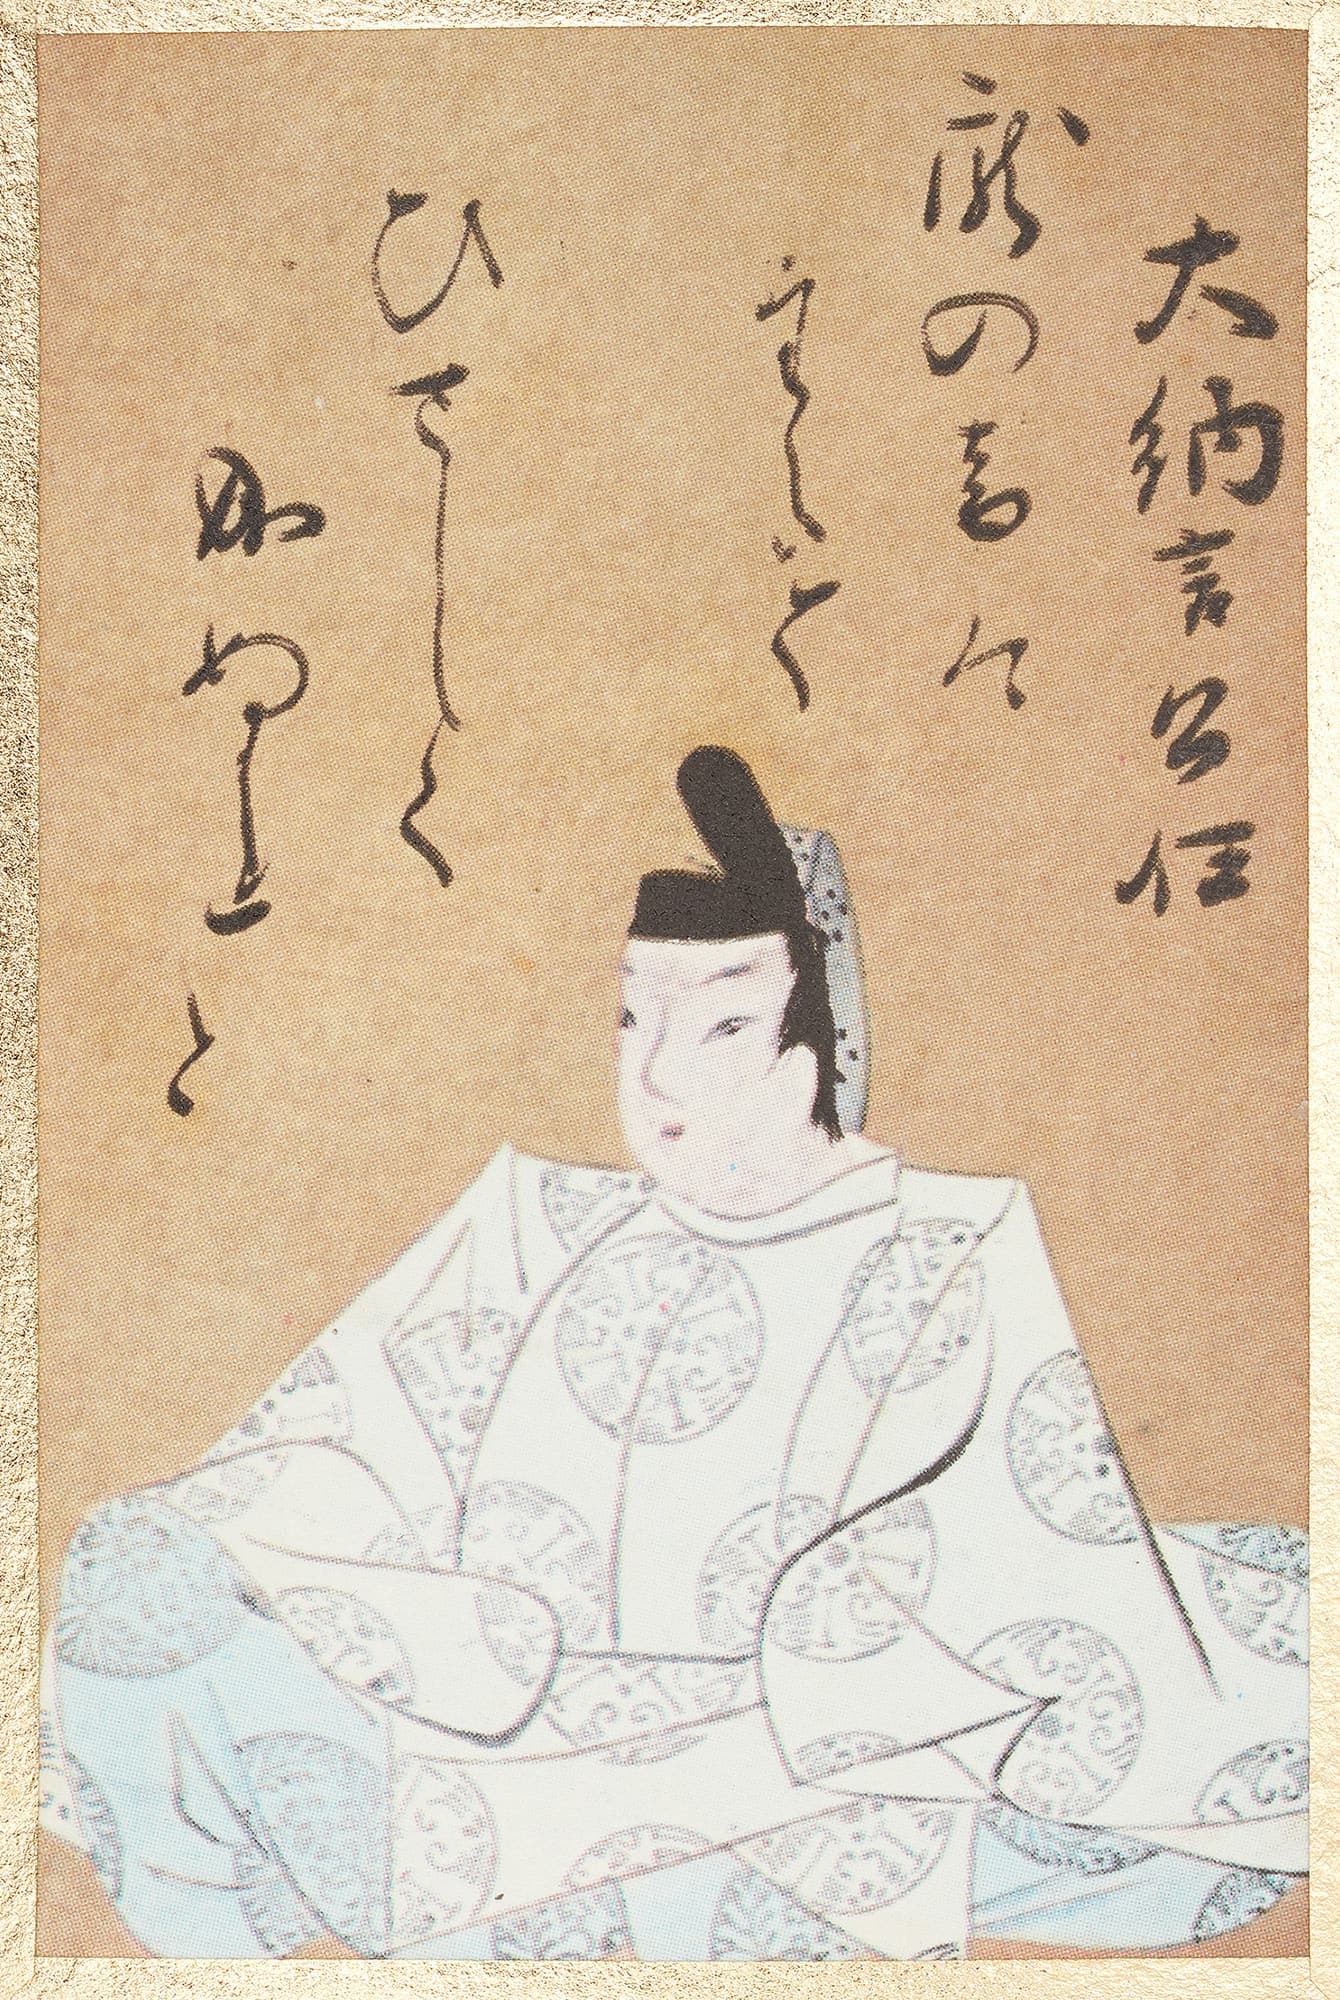 大納言公任
瀧の音は
たえて
ひさしく
成ぬれと